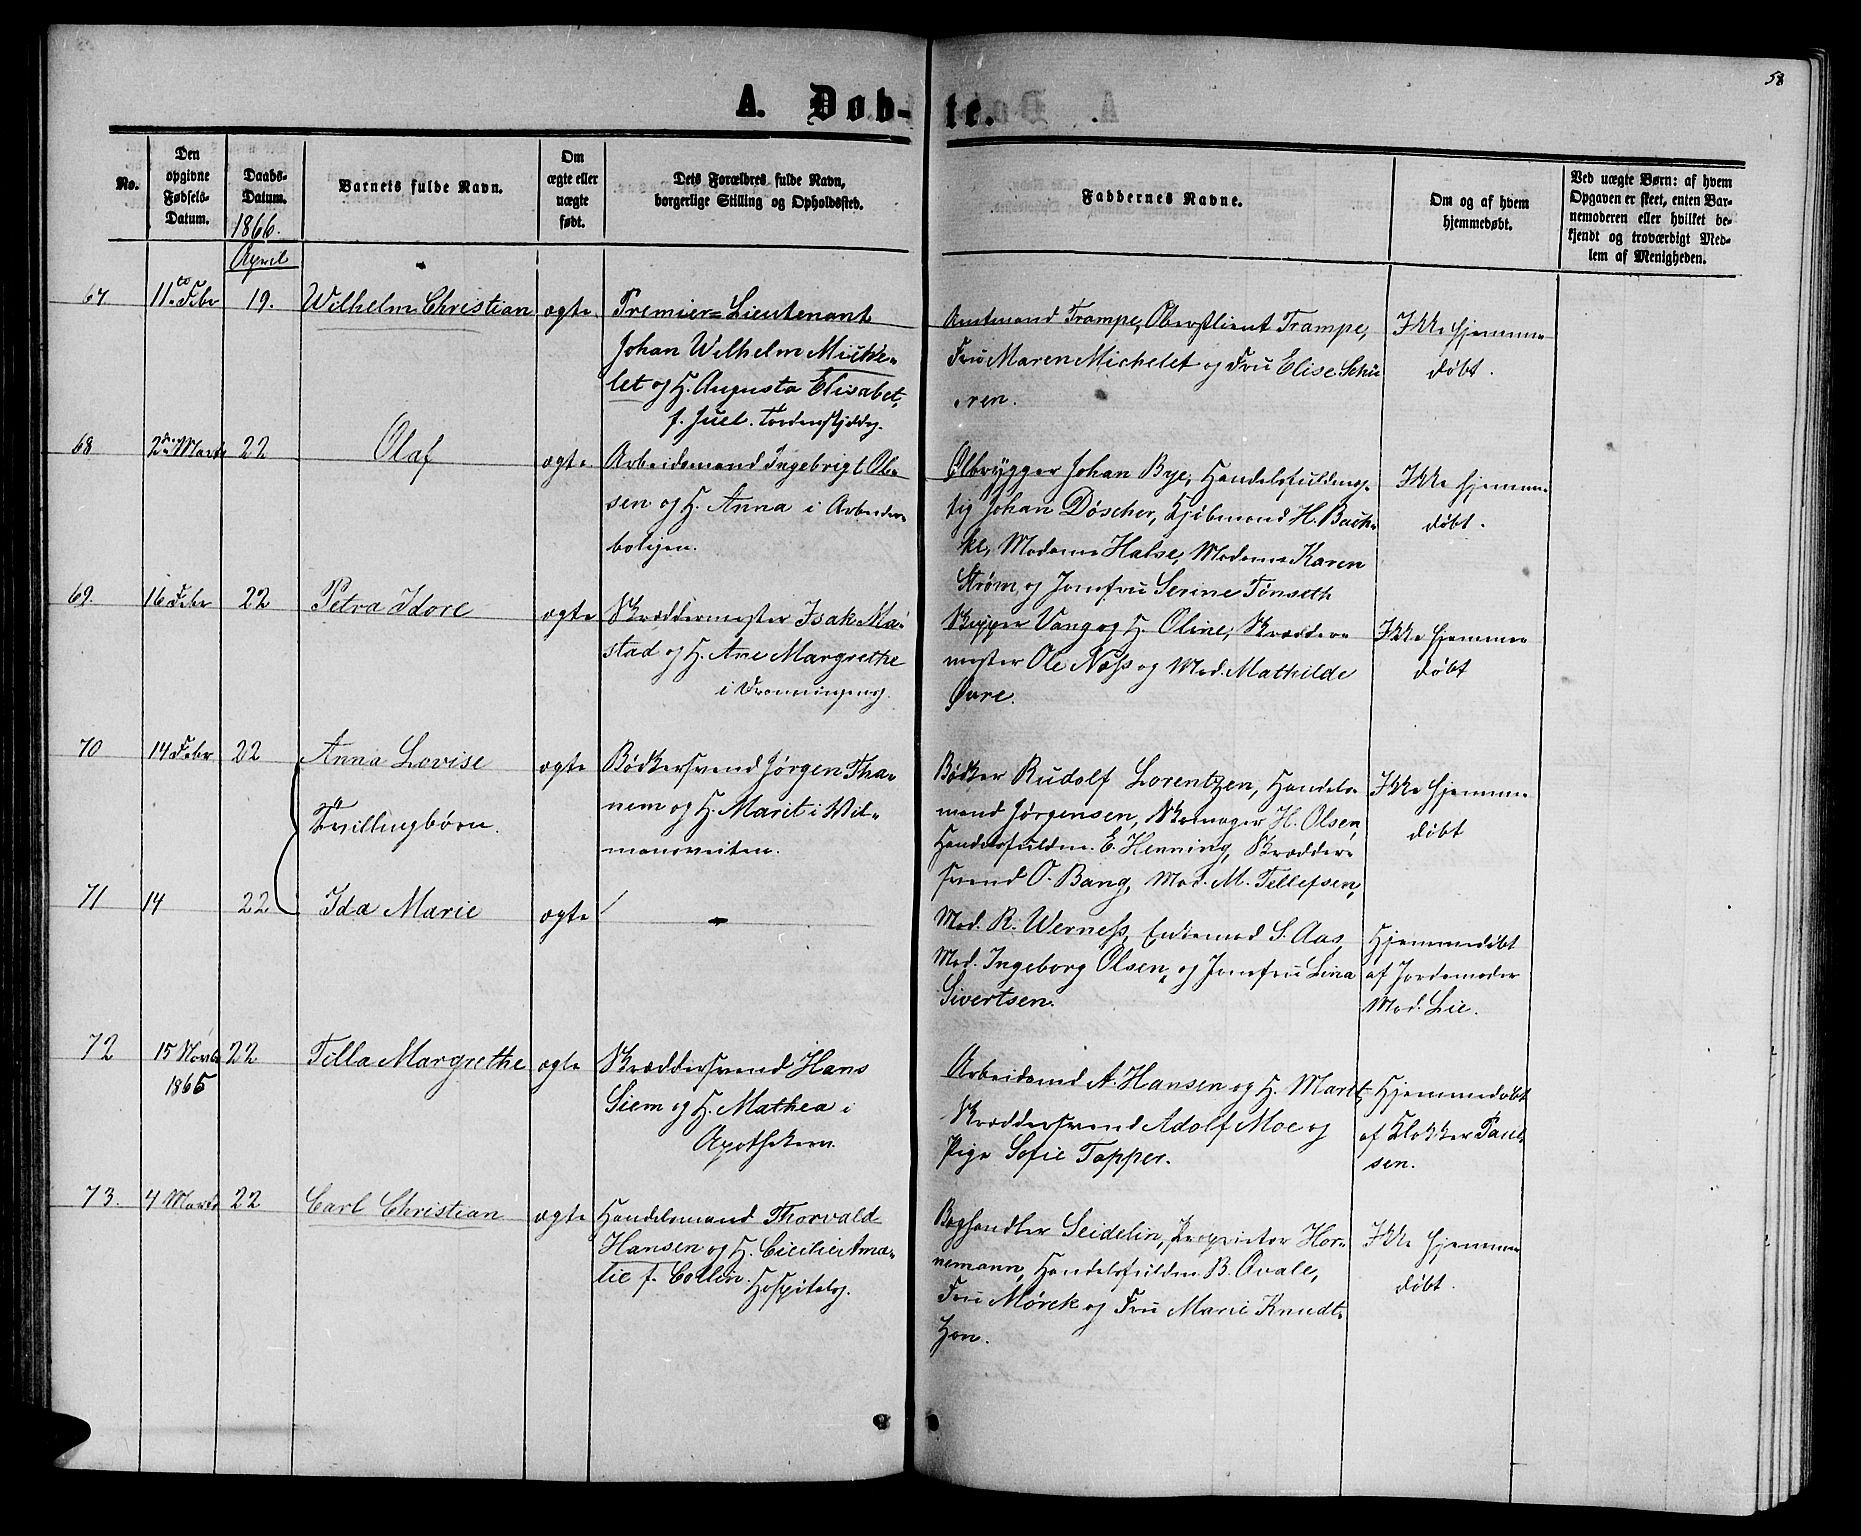 58
A. Døb-te.
No.
Den opgivne Fødsels-Datum.
Daabs-Datum.
1866.
April
Barnets fulde Navn.
Om ægte eller uægte født.
Dets Forældres fulde Navn, borgerlige Stilling og Opholdssted.
Faddernes Navne.
Om og af hvem hjemmedøbt.
Ved uægte Børn: af hvem Opgaven er skeet, enten Barnemoderen eller hvilket bekjendt og troværdigt Medlem af Menigheden.
67 11te Febr 19. Wilhelm Christian ægte
Premier=Lieutenant
Johan Wilhelm Miche-
let og H. Augusta Elisabet,
f. Juel. Tordenskjoldsg.
Amtmand Trampe, Oberstlieut Trampe,
Fru Maren Michelet og Fru Elise Schie-
ren.
Ikke hjemme-
døbt.
68 2den Marts 22 Olaf ægte
Arbeidsmand Ingebrigt Ol-
sen og H. Anna i Arbeider-
boligen.
Ølbrygger Johan Bye, Handelsfuldmæg-
tig Johan Döscher, Kjöbmand H. Bach-
ke, Madame Halse, Madame Karen
Strøm og Jomfru Serine Tønseth
Ikke hjemme-
døbt.
69. 16 Febr 22 Petra Idore ægte
Skræddermester Isak Må-
stad og H. Ane Margrethe
i Dronningensg.
Skipper Vang og H. Oline, Skrædder-
mester Ole Næss og Mad. Mathilde
Øvre.
Ikke hjemme-
døbt
70 14 Febr 22 Anna Lovise ægte
Tvillingbørn.
Bødkersvend Jørgen Tha-
nem og H. Marit i Wil-
mansveiten.
Bødker Rudolf Lorentzen, Handels-
mand Jørgensen, Skomager H. Olsen,
Handelsfuldm. E. Henning, Skrædder-
svend O. Bang, Mad. M. Tellefsen,
Ikke hjemme-
døbt
71 14 22 Ida Marie ægte
Mad. R. Werness, Enkemad S. Aas
Mad. Ingeborg Olsen, og Jomfru Lina
Sivertsen.
Hjemmedøbt
af Jordemoder
Mad. Lie.
72 15 Novbr 22 Tilla Margrethe ægte
1865
Skræddersvend Hans
Siem og H. Mathea i
Apothekerv.
Arbeidsmd A. Hansen og H. Marit,
Skræddersvend Adolf Moe og
Pige Sofie Tapper.
Hjemmedøbt
af Klokker Paul-
sen.
73. 4 Marts 22 Carl Christian ægte
Handelsmand Thorvald
Hansen og H. Cicilie Ama-
lie f. Collin. Hospitalsg.
Boghandler Seidelin, Proprietær Hor-
nemann, Handelsfuldm B. Qvale,
Fru Mørck og Fru Marie Knudt-
zon.
Ikke hjemme-
døbt.